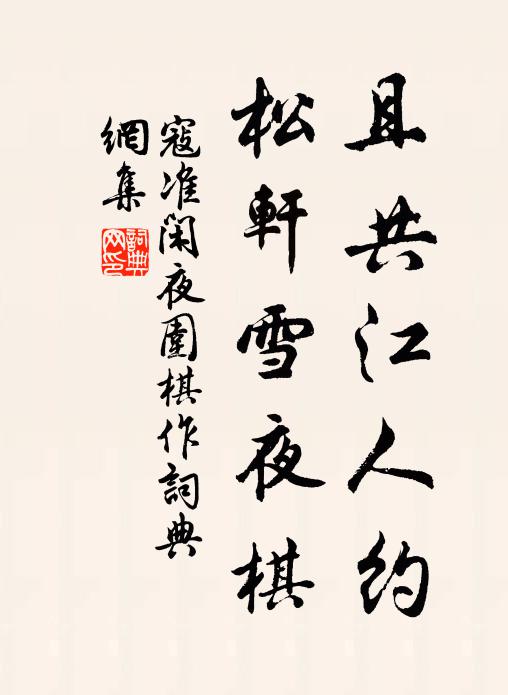 且共江人约
松軒雪夜棋
寇准闲夜圍棋作詞典
網集
詞典
网印